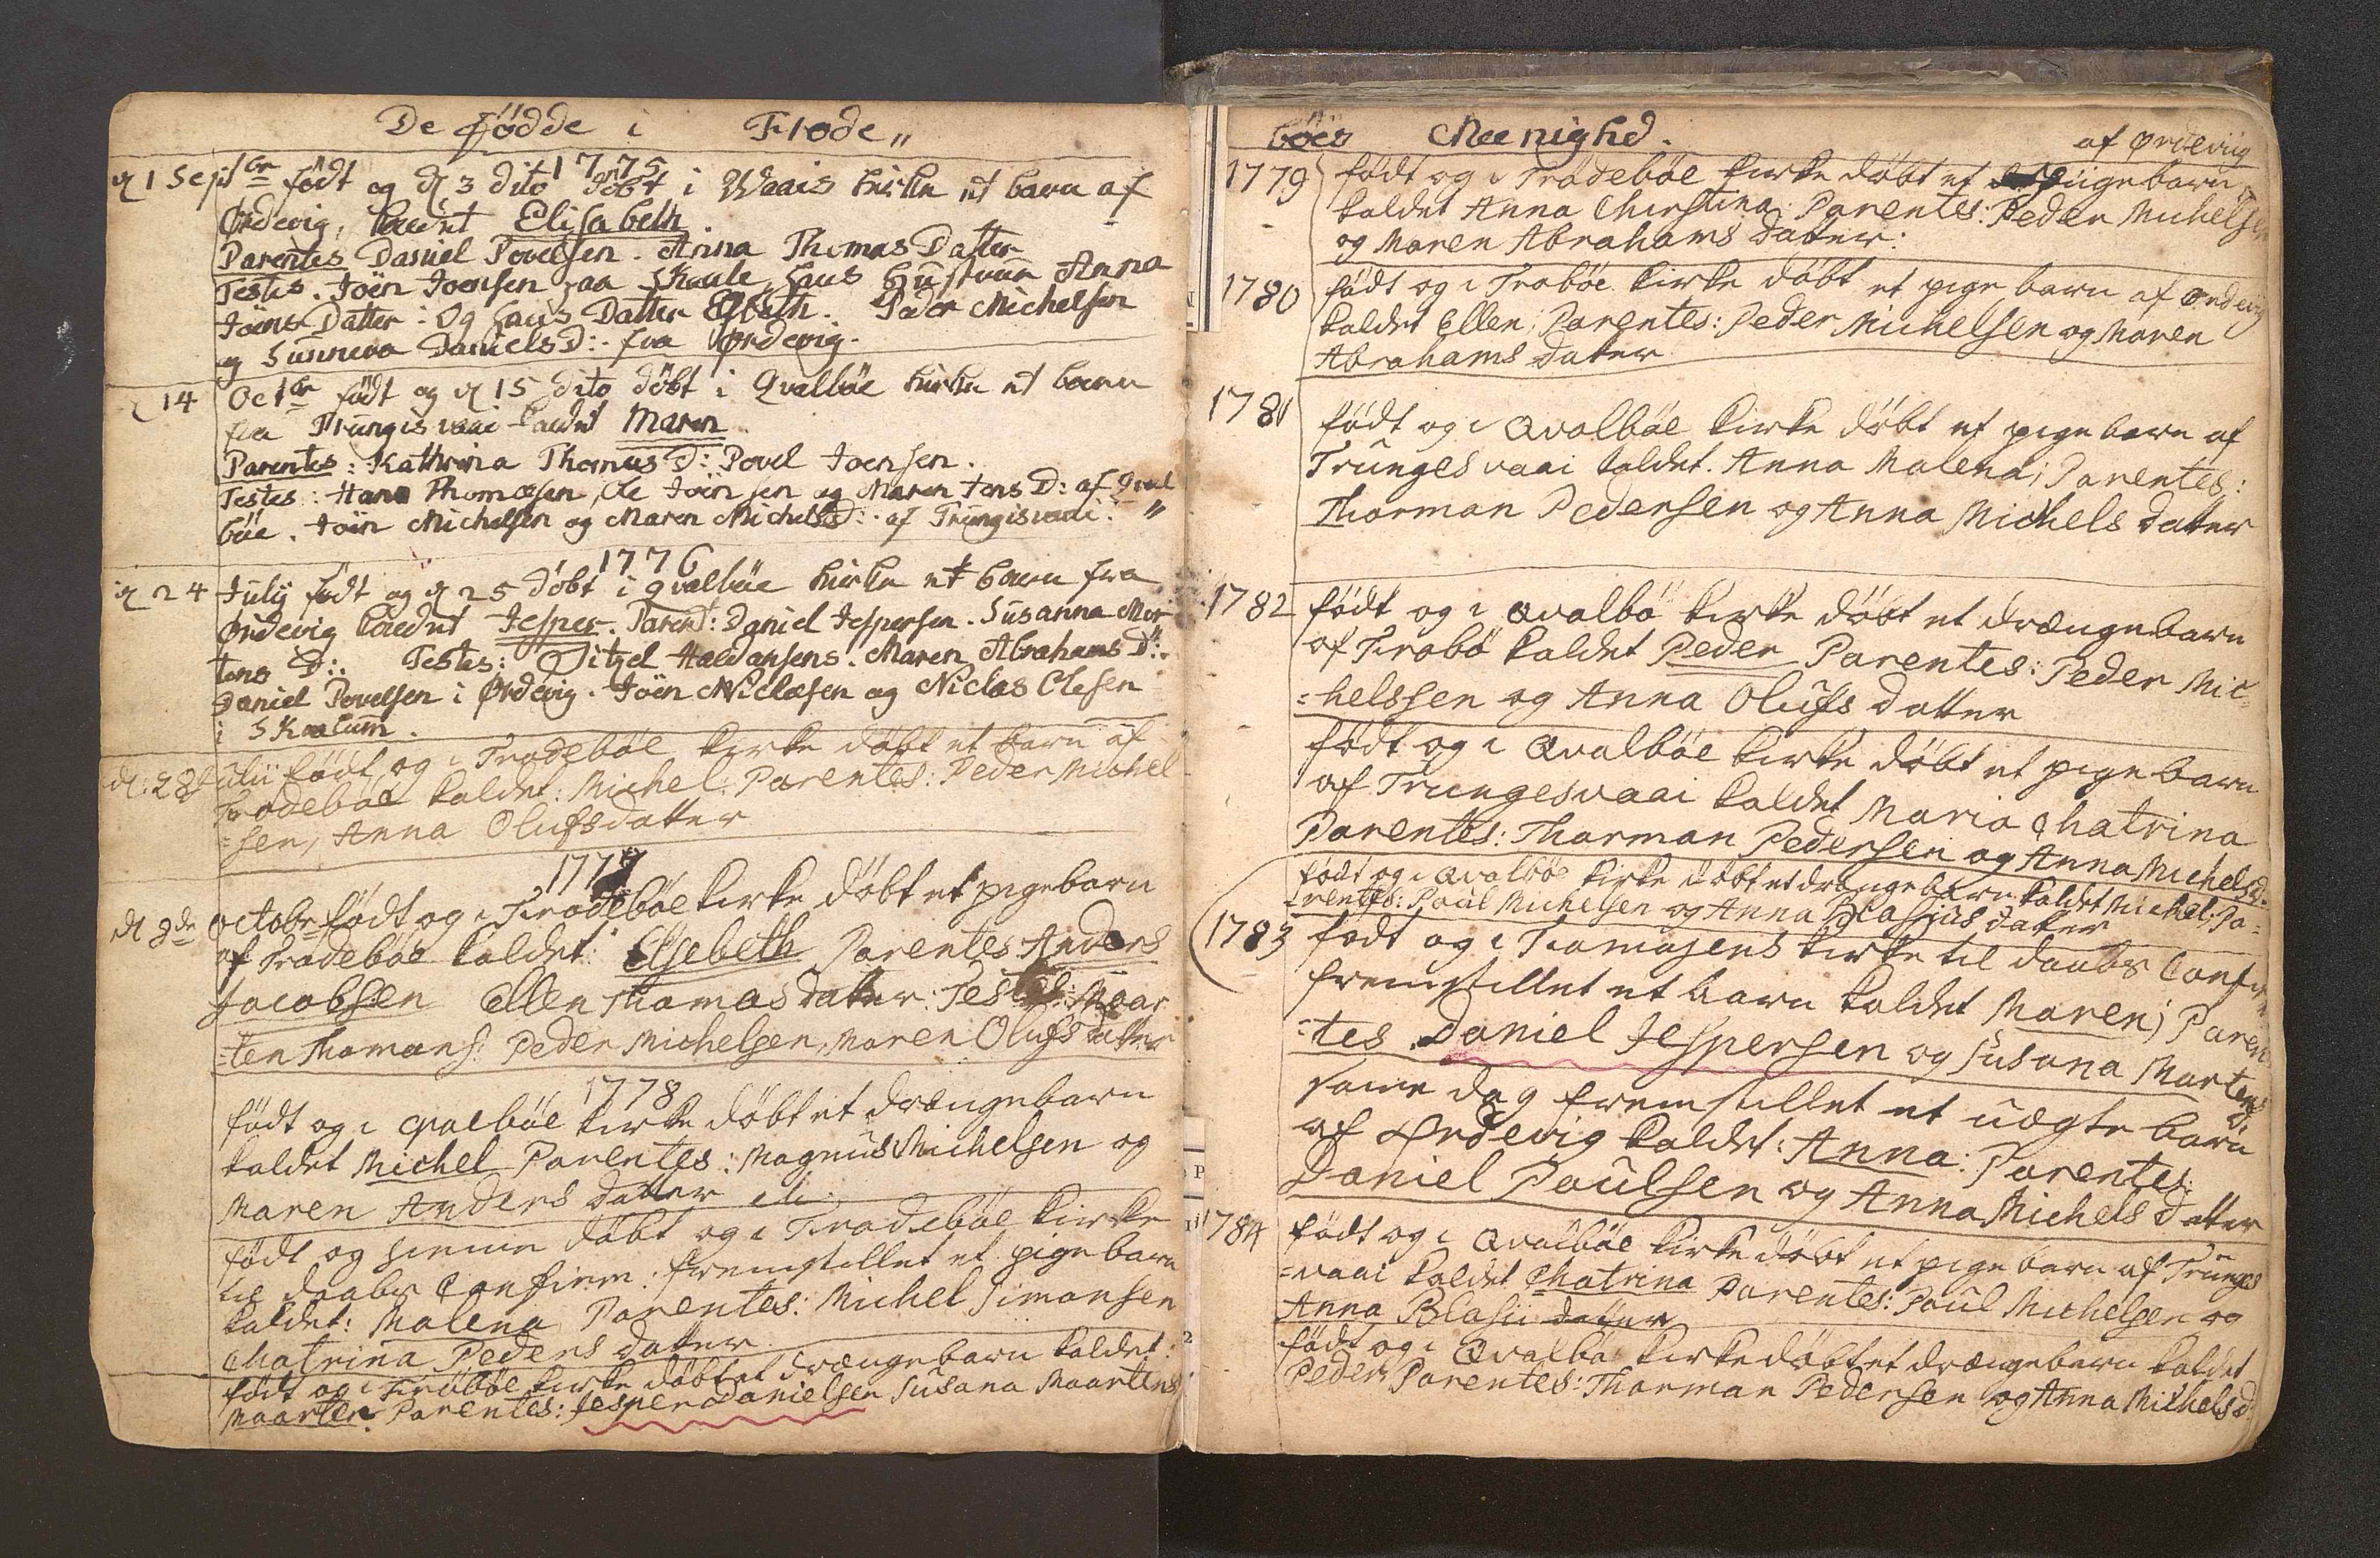 De födde i Frode„
1775
d 1 Septbr født og d 3 dito döbt i Waais kirke et barn af
Ørdevig, kaldet Elisabeth
Parentes Daniel Povelsen. Anna Thomas Datter
Testes. Joen Joensen paa Skaale, hans hustrue Anna
Joens Datter. Og hans Datter Elsbeth. Peder Michelsen
og Sunneva Daniels D: fra Ørdevig.
d 14 Octbr födt og d 15 dito döbt i Qvalböe kirke et barn
fra Trungisvaai kaldet Maren
Parentes: Kathrina Thomas D: Povel Joensen.
Testes: Hans Thomæsen, Ole Joensen og Maren Jens D: af Qval
böe. Joen Michelsen og Maren Michels D: af Trungisvaai. „
1776
d 24 July födt og d 25 döbt i qvalböe kirke et barn fra
Ørdevig kaldet Jesper. Parent: Daniel Jespersen. Susanna Mor
tens D:. Testes: Ditzel Haldansens. Maren Abrahams D:.
Daniel Povelsen i Ørdevig. Joen Niclæsen og Niclas Olesen
i Skaalum.
d: 28 Julii født og i Frodebøe kirke døbt et barn af
Frodebøe kaldet: Michel: Parentes: Peder Michel
=sen, Anna Olufsdatter
1777
d 3de octobr født og i Frodebøe kirke døbt et pigebarn
af Frodebøe kaldet: Elsebeth Parentes Anders
Jacobsen Ellen Thomasdatter: Testes: Moar
=ten Thomans: Peder Michelsen, Maren Olufsdatter
1778
født og i qvalbøe kirke døbt et drængebarn
kaldet Michel Parentes: Magnus Michelsen og
Maren Anders datter
født og hiemme døbt og i Frodebøe kirke
til daabs Confirm: fremstillet et pigebarn
kaldet: Malena Parentes: Michel Simonsen
Chatrina Peders datter
født og i Frobøe kirke døbt et drængebarn kaldet:
Maarten Parentes: Jesper Danielsen Susana Maartens
böes Meenighd.
af Ørdeviig
1779 født og i Frodebøe kirke døbt et pigebarn
kaldet Anna Christina Parentes: Peder Michelsen
og Maren Abrahams datter:
1780 født og i Frobøe kirke døbt et pige barn af Ørdevig
kaldet Ellen; Parentes: Peder Michelsen og Maren
Abrahams datter
1781 født og i Qvalbøe kirke døbt et pigebarn af
Trungesvaai kaldet. Anna Malena; Parentes:
Thorman Pedersen og Anna Michels datter
1782 født og i Qvalbø kirke døbt et drængebarn
af Frobø kaldet Peder Parentes: Peder Mic=
=helssen og Anna Olufs datter
født og i Qvalbøe kirke døbt et pige barn
af Trungesvaai kaldet Maria Chatrina
Parentes: Thorman Pedersen og Anna Michelsd.
født og i Qvalbøe kirke døbt et drængebarn kaldet Michel; Pa=
=rentes: Paul Michelsen og Anna Blasius datter
1783 født og i Framøjens kirke til daabs Confir
fremstillet et barn kaldet Maren; Paren
=tes Daniel Jespersen og Susana Martens
d:
samme dag fremstillet et uægte barn
af Ørdevig kaldet: Anna: Parentes:
Daniel Paulsen og Anna Michels datter
1784 født og i Qvalbøe kirke døbt et pige barn af Trunges
=vaai kaldet Chatrina Parentes: Paul Michelsen og
Anna Blasii datter
født og i Qvalbø kirke døbt et drængebarn kaldet
Peder Parentes: Thorman Pedersen og Anna Michelsd: